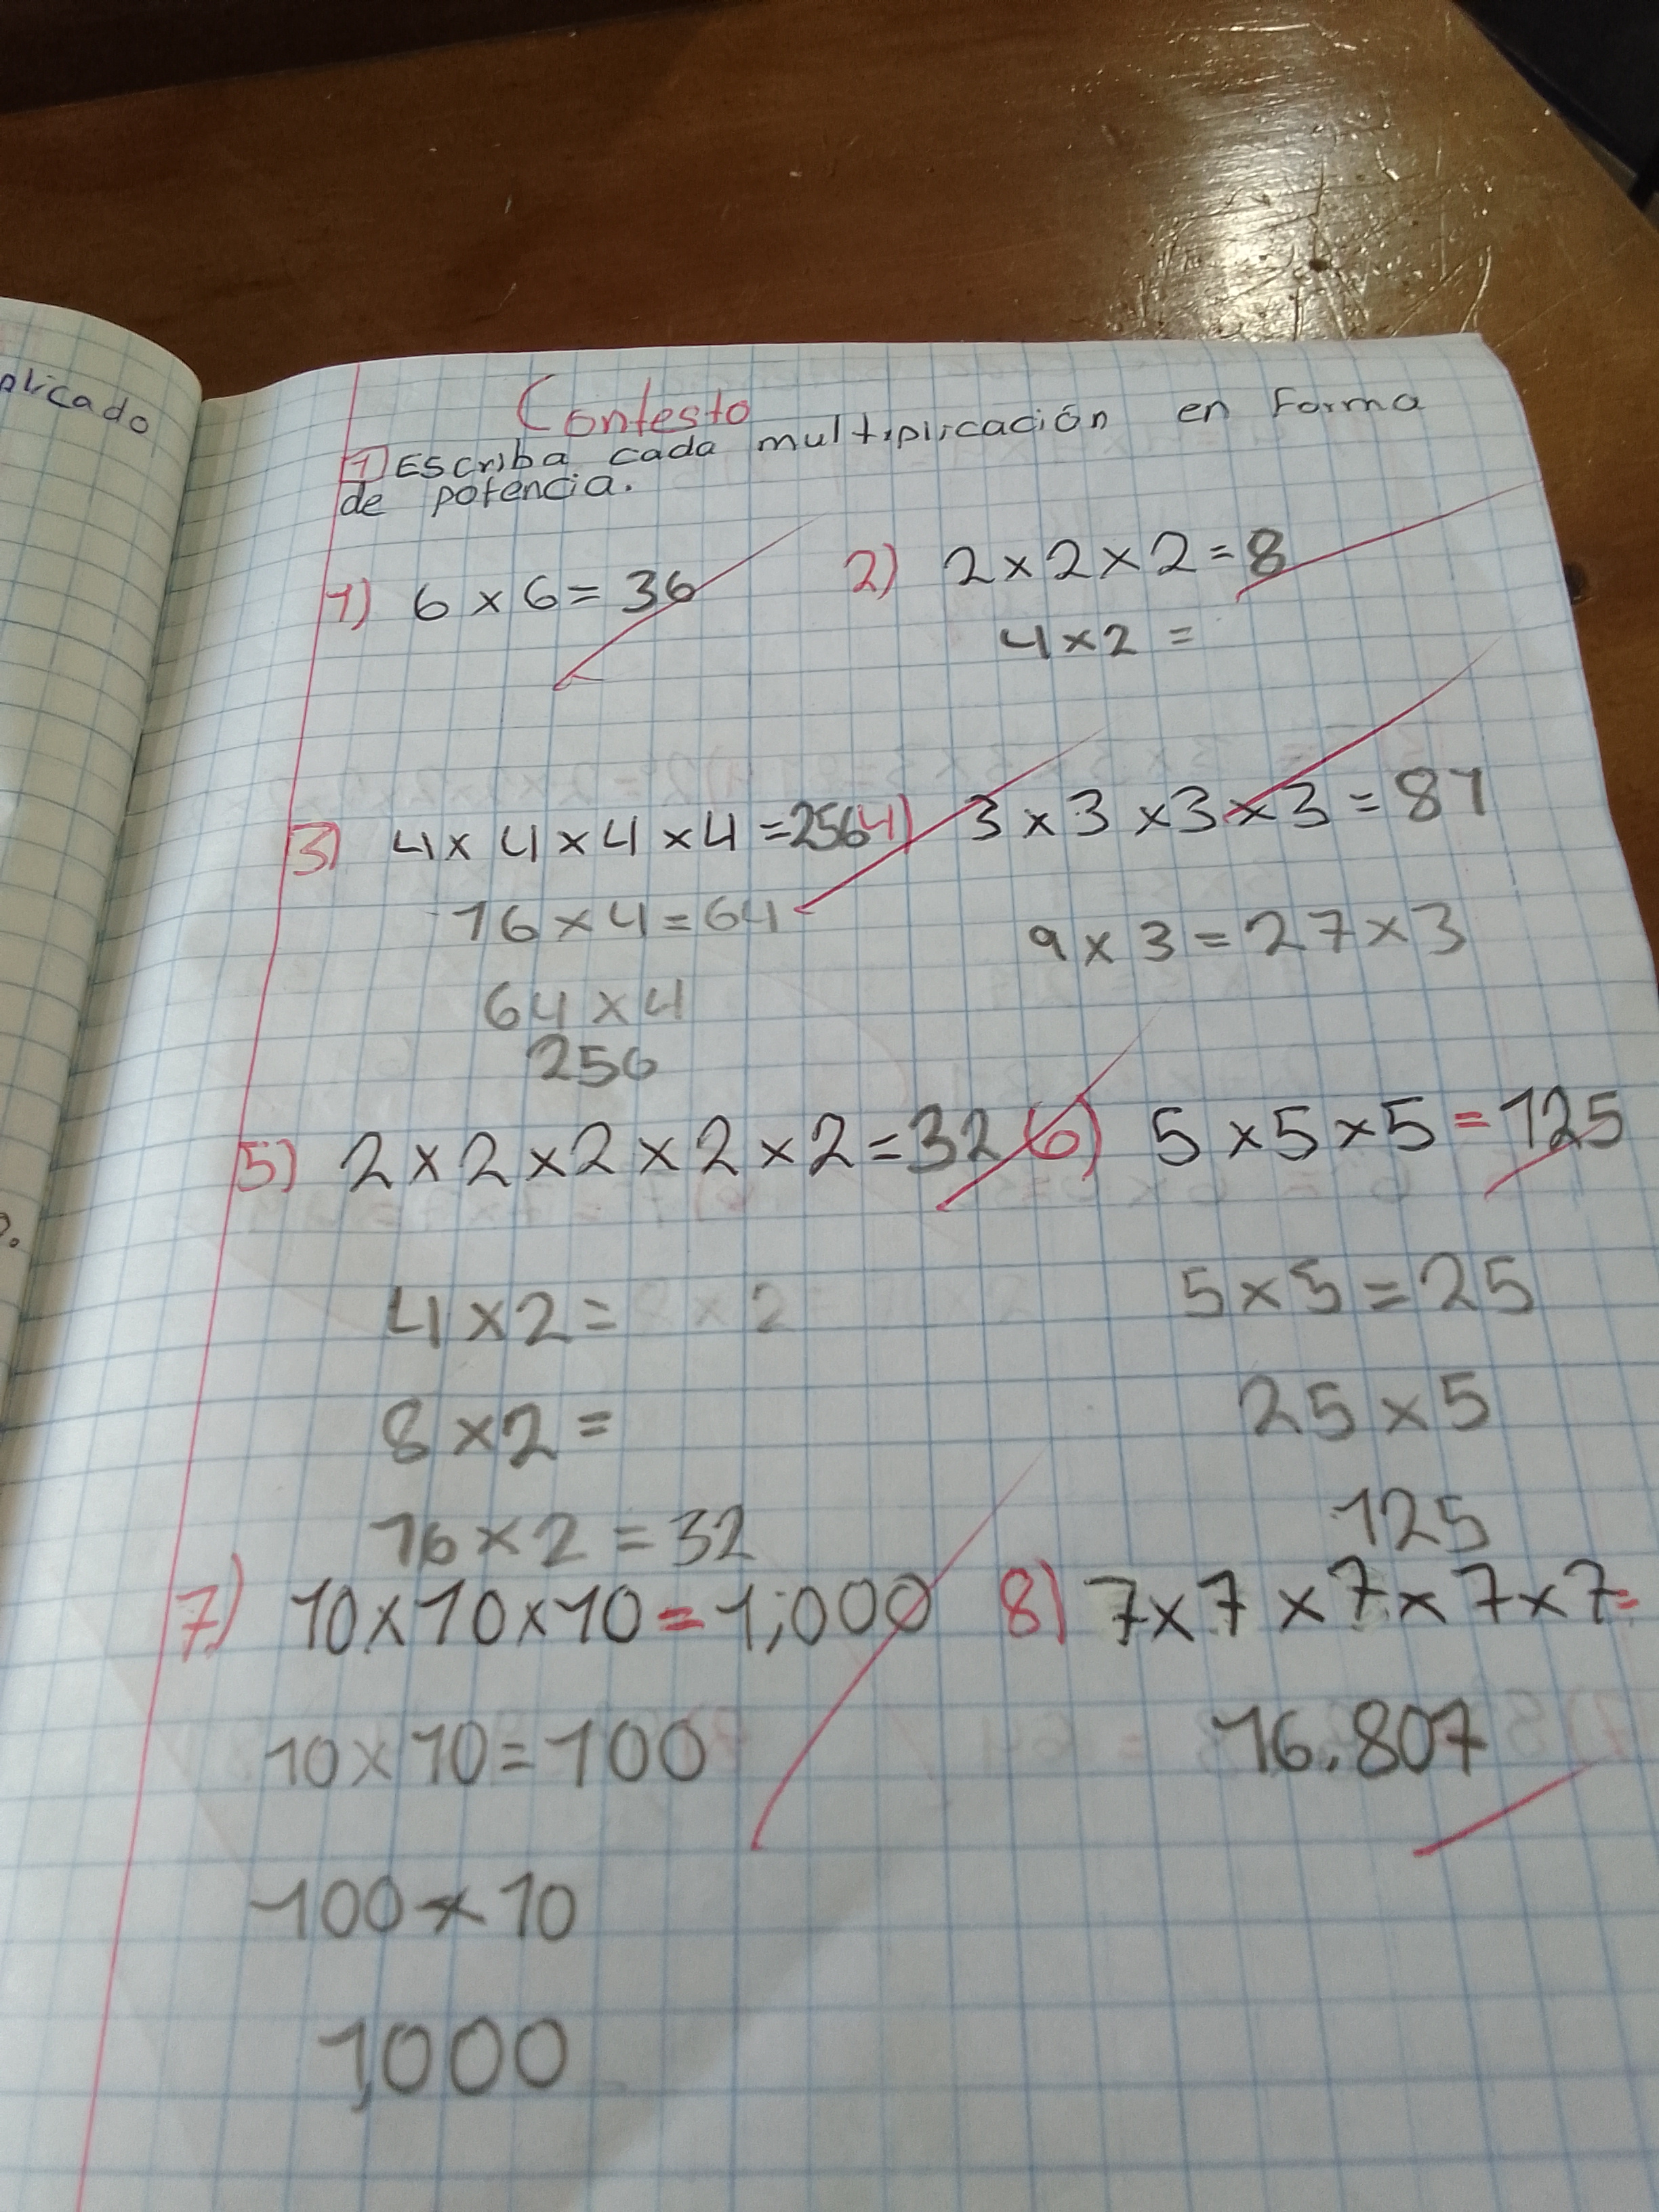 plicado
Contesto
1 Escriba cada multiplicación en forma
de potencia.
1) 6 x 6 = 36
2) 2 x 2 x 2 = 8
4 x 2 =
3) 4 x 4 x 4 x 4 = 256
16 x 4 = 64
64 x 4
256
4) 3 x 3 x 3 x 3 = 81
9 x 3 = 27 x 3
5) 2 x 2 x 2 x 2 x 2 = 32
4 x 2 =
8 x 2 =
16 x 2 = 32
6) 5 x 5 x 5 = 125
5 x 5 = 25
25 x 5
125
7) 10 x 10 x 10 = 1,000
10 x 10 = 100
100 x 10
1,000
8) 7 x 7 x 7 x 7 x 7 =
16.807